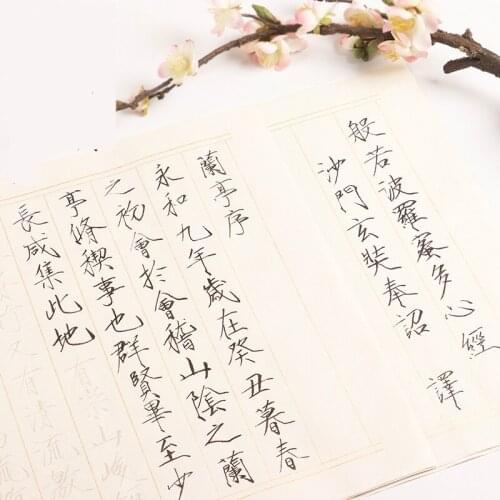 般若波羅蜜多心經
沙門玄奘奉詔 譯
蘭亭序
永和九年歲在癸丑暮春
之初會於會稽山陰之蘭
亭脩稧事也群賢畢至少
長咸集此地
有崇山峻
又有清流激